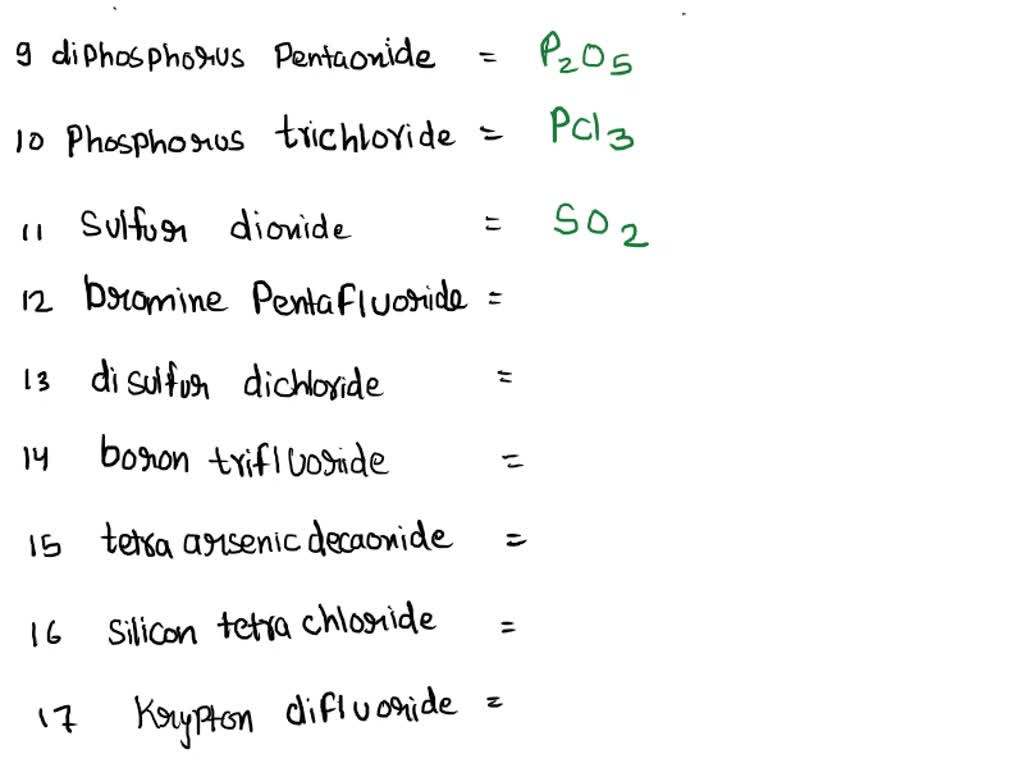 9 diphosphorus Pentaonide = P₂O₅
10 Phosphorus trichloride = PCl₃
11 Sulfur dionide = SO₂
12 bromine Pentafluoride =
13 disulfur dichloride =
14 boron trifluoride =
15 tetra arsenic decaonide =
16 silicon tetra chloride =
17 Krypton difluoride =